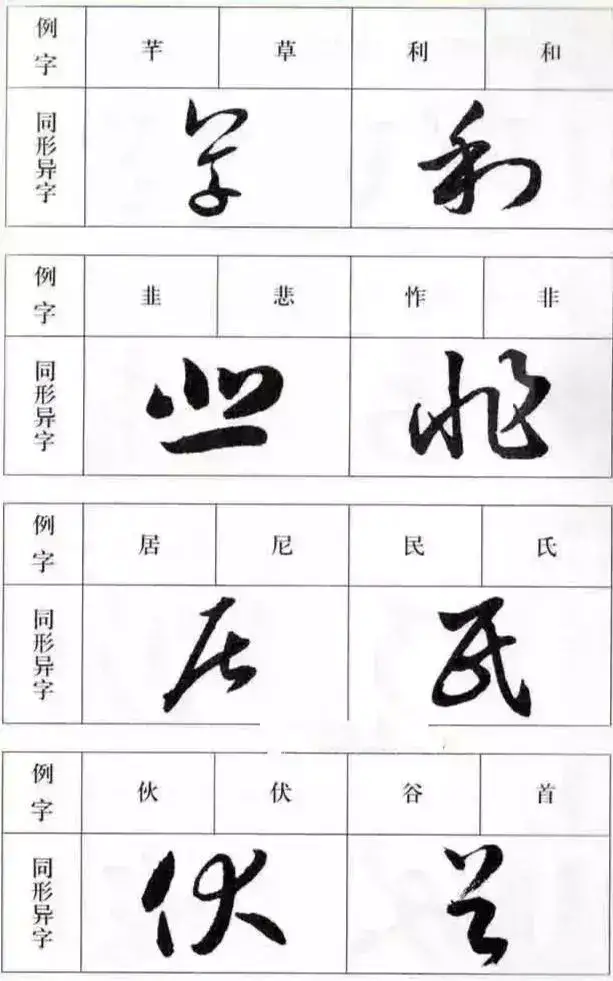 例字 芊 草 利 和
同形异字
例字 韭 悲 怍 非
同形异字
例字 居 尼 民 氏
同形异字
例字 伙 伏 谷 首
同形异字